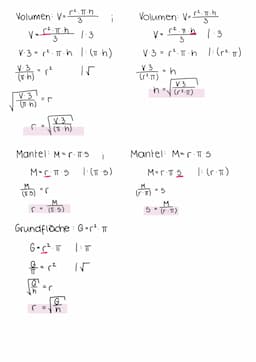 Volumen: V = r²·π·h / 3 ;
V = r²·π·h / 3 | ·3
V·3 = r²·π·h | :(π·h)
V·3 / (π·h) = r² | √
√(V·3 / (π·h)) = r
r = √(V·3 / (π·h))
Volumen: V = r²·π·h / 3
V = r²·π·h / 3 | ·3
V·3 = r²·π·h | :(r²·π)
V·3 / (r²·π) = h
h = √(V·3 / (r²·π))
Mantel: M = r·π·s ;
M = r·π·s | :(π·s)
M / (π·s) = r
r = M / (π·s)
Mantel: M = r·π·s
M = r·π·s | :(r·π)
M / (r·π) = s
s = M / (r·π)
Grundfläche: G = r²·π
G = r²·π | :π
G / π = r² | √
√(G / π) = r
r = √(G / π)